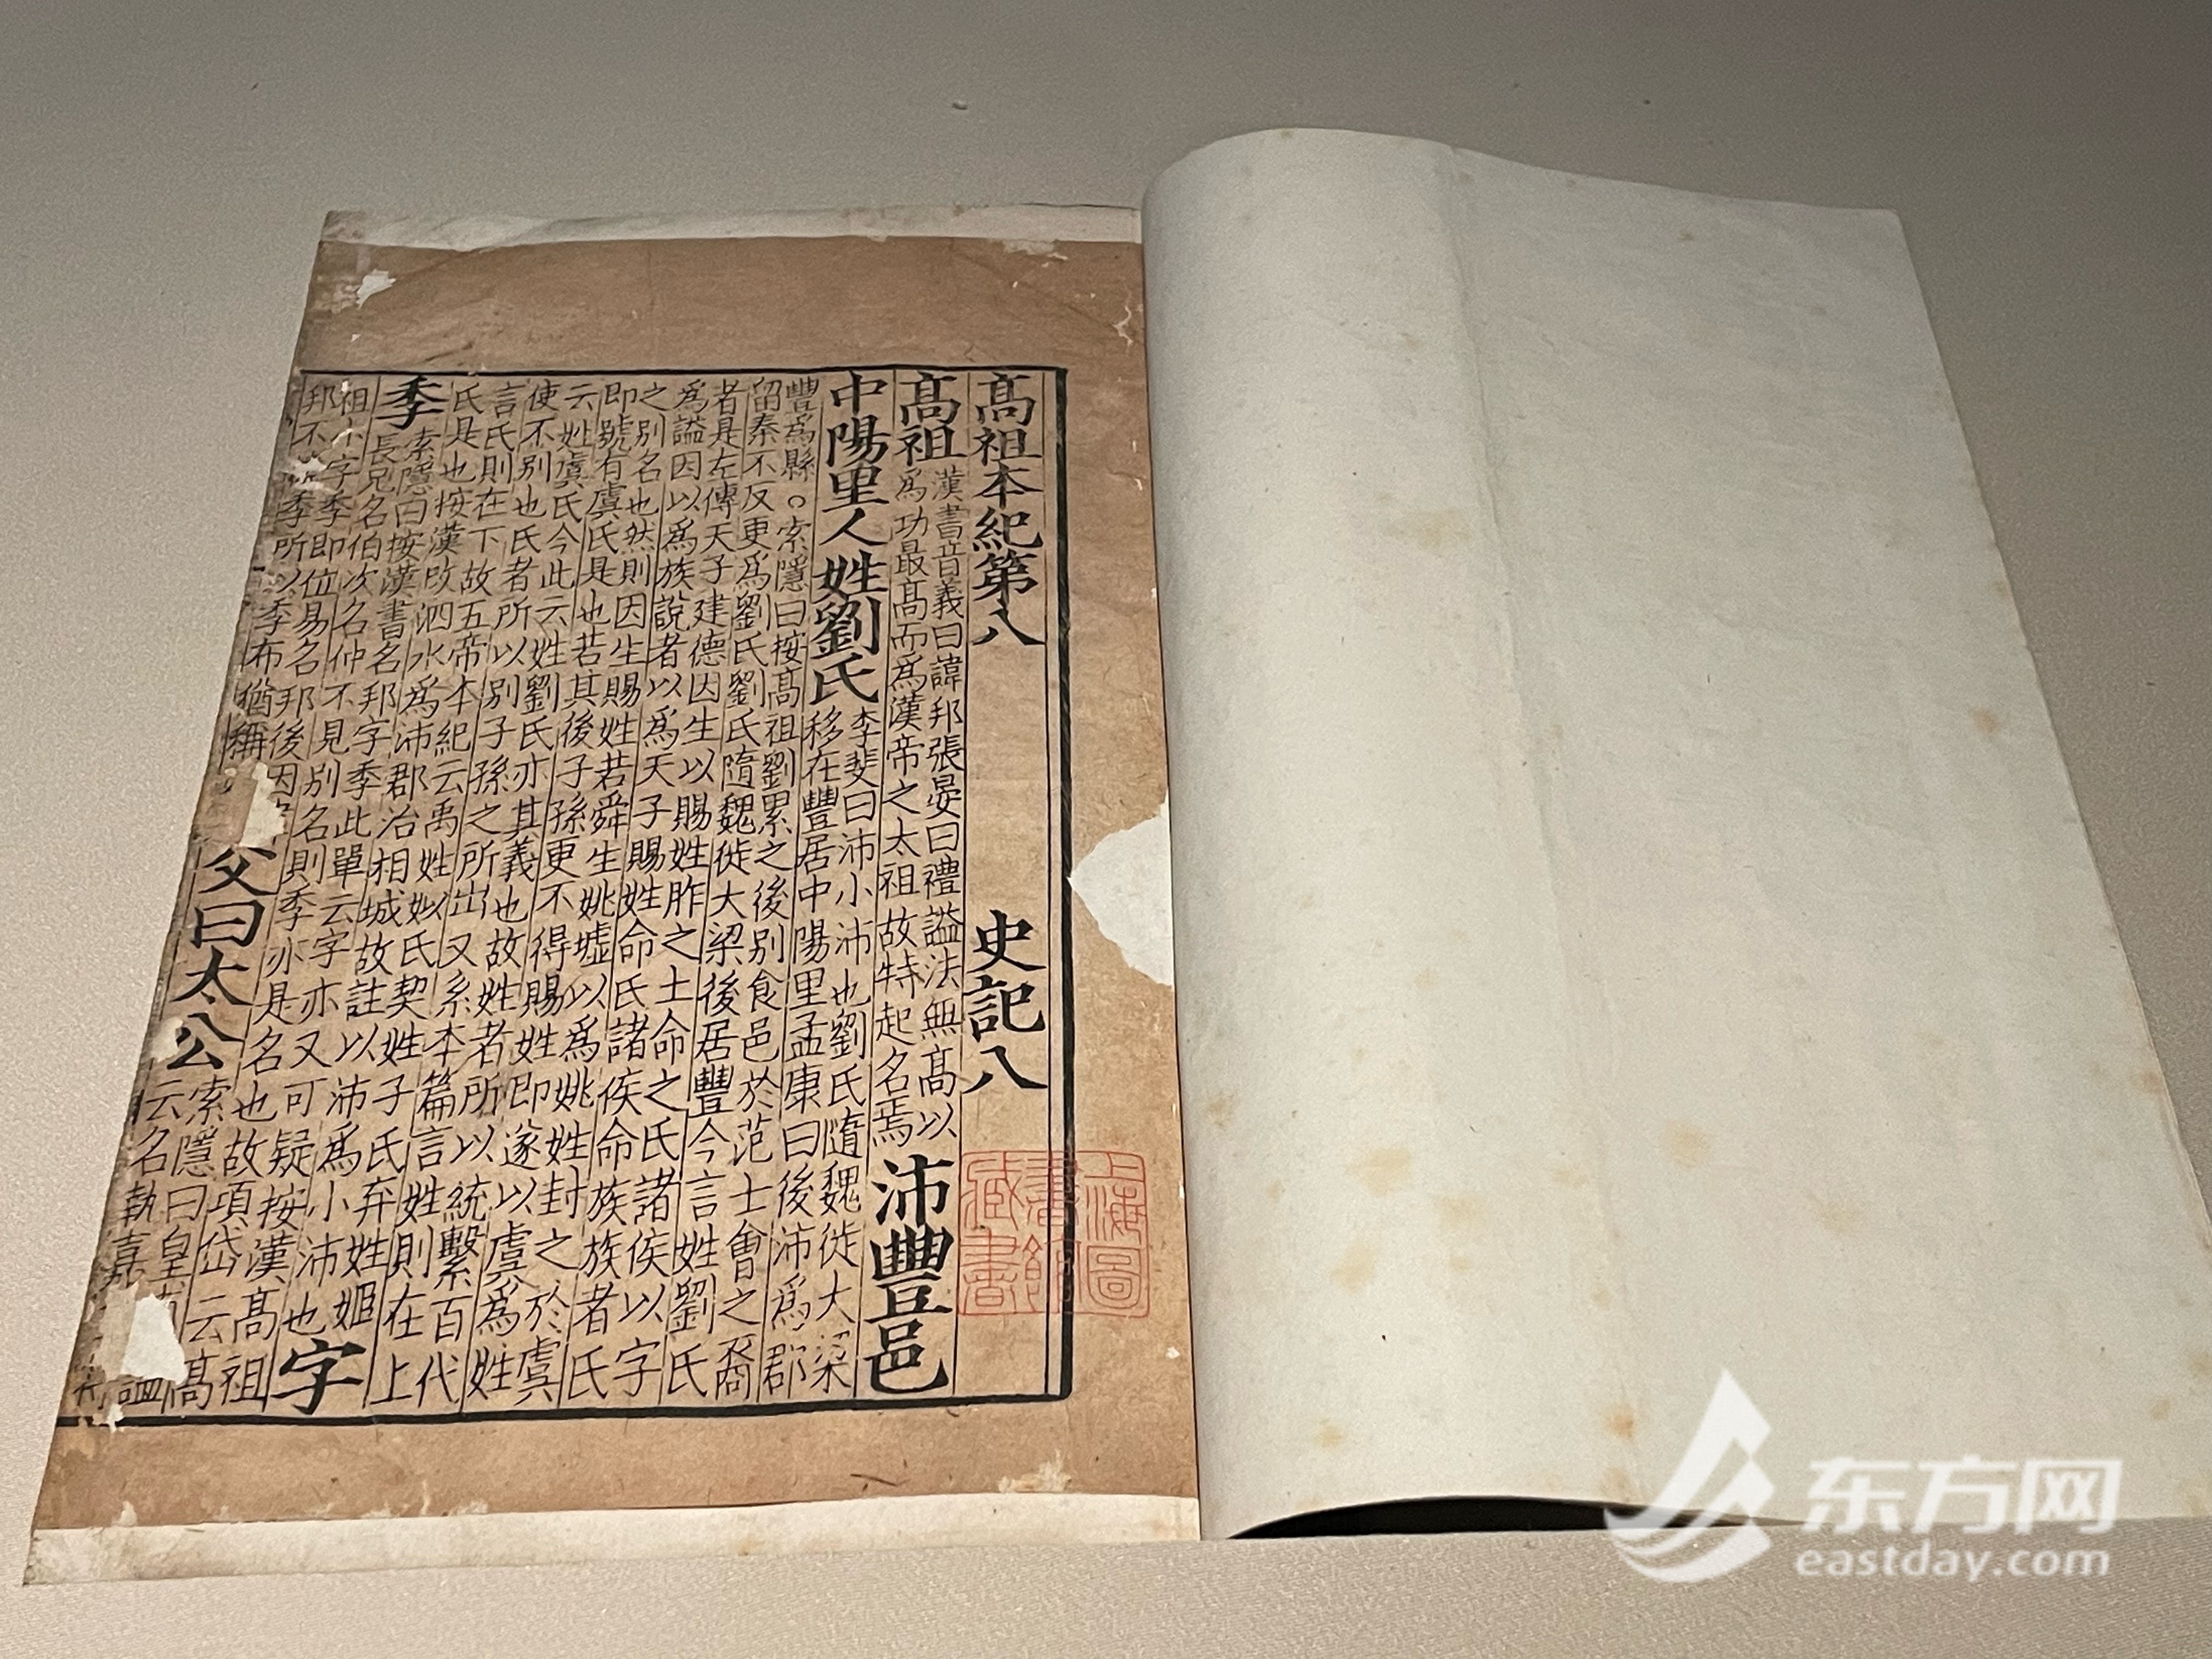 髙祖本紀第八 史記八
髙祖
漢書音義曰諱邦張晏曰禮謚法無髙以
爲功最髙而爲漢帝之太祖故特起名焉
沛豐邑
中陽里人姓劉氏
李斐曰沛小沛也劉氏隨魏徙大梁
移在豐居中陽里孟康曰後沛爲郡
豐爲縣○索隱曰按髙祖劉累之後別食邑於范士會之裔
留秦不反更爲劉氏劉氏隨魏徙大梁後居豐今言姓劉氏
者是左傳天子建德因生以賜姓胙之土命之氏諸侯以字
爲謚因以爲族說者以爲天子賜姓命氏諸侯命族族者氏
之別名也然則因生賜姓若舜生姚墟以爲姚姓封之於虞
即號有虞氏是也若其後子孫更不得賜姓即遂以虞爲姓
云姓虞氏今此云姓劉氏亦其義也故姓者所以統繫百代
使不別也氏者所以別子孫之所出又系本篇言姓則在上
言氏則在下故五帝本紀云禹姓姒氏契姓子氏弃姓姬
氏是也按漢改泗水爲沛郡治相城故註以沛爲小沛也
字
季
索隱曰按漢書名邦字季此單云字亦又可疑按漢髙祖
長兄名伯次名仲不見別名則季亦是名也故項岱云髙
祖小字季即位易名邦後因
邦不諱季所以季布猶稱
父曰太公
索隱曰皇
云名執嘉
上海圖書館藏書
东方网
eastday.com